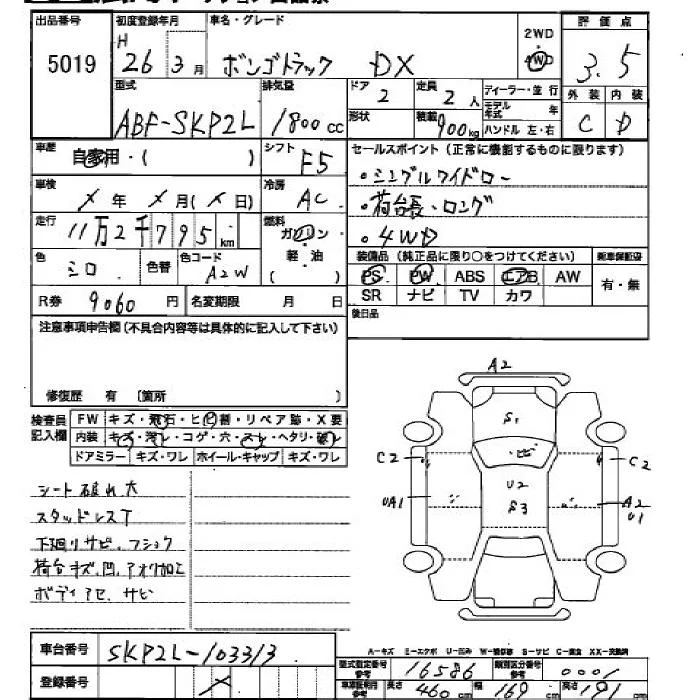 出品番号 初度登録年月 車名・グレード 評価点
5019 H 26年 3月 ボンゴトラック DX 2WD・4WD 3.5
型式 排気量 ドア 2 定員 2人 ディーラー・並行 外装 内装
ABF-SKP2L 1800cc 形状 積載 900kg モデル年式 年 ハンドル 左・右 C D
車歴 自家用・( ) シフト F5 セールスポイント (正常に機能するものに限ります)
車検 X年 X月(X日) 冷房 AC ・シングルワイドロー
・荷台長・ロング
走行 11万2千795km 燃料 ガソリン・軽油 ( ) ・4WD
色 シロ 色替 色コード A2W 装備品 (純正品に限り○をつけてください)
PS PW ABS エアB AW 有・無
R券 9060円 名変期限 月 日 SR ナビ TV カワ
注意事項申告欄(不具合内容等は具体的に記入して下さい) 後日品
修復歴 有 〔箇所 〕
検査員記入欄 FW キズ・飛石・ヒビ割・リペア跡・X要
内装 キズ・汚レ・コゲ・穴・スレ・ヘタリ・破レ
ドアミラー キズ・ワレ ホイール・キャップ キズ・ワレ
シート破れ大
スタッドレスT
下廻りサビ、フショク
荷台キズ、凹、アオリ加工
ボディアセ、サビ
A2
S1
ヒビ
C2 U2 C2
UA1 S3 A2
U1
A-キズ E-エクボ U-凹み W-補修跡 S-サビ C-腐食 XX-交換済
車台番号 SKP2L-103313
型式指定番号 参考 16586 類別区分番号 参考 0001
登録番号 X 車輌証明用 参考 長さ 460cm 幅 169cm 高さ 191cm